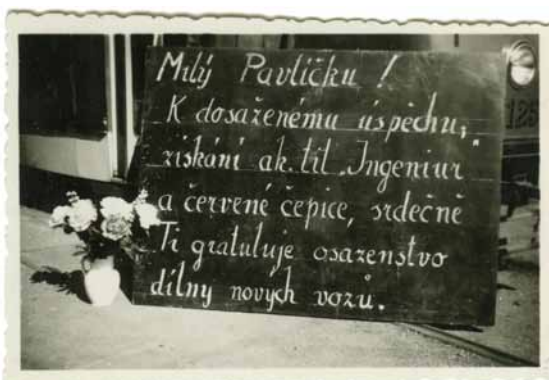 Milý Pavlíčku !
K dosaženému úspěchu,
získání ak. tit. „Ingeniur"
a červené čepice, srdečně
Ti gratuluje osazenstvo
dílny nových vozů.
125